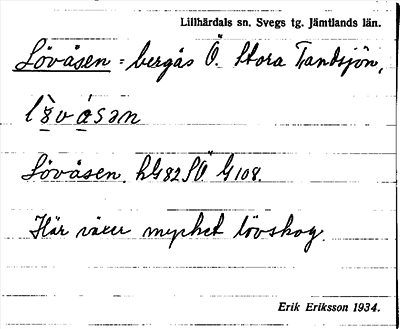 Lillhärdals sn. Svegs tg. Jämtlands län.
Lövåsen = bergås Ö. Stora Tandsjön,
Lövåsen. hG82SÖ G108.
Här växer mycket lövskog.
Erik Eriksson 1934.